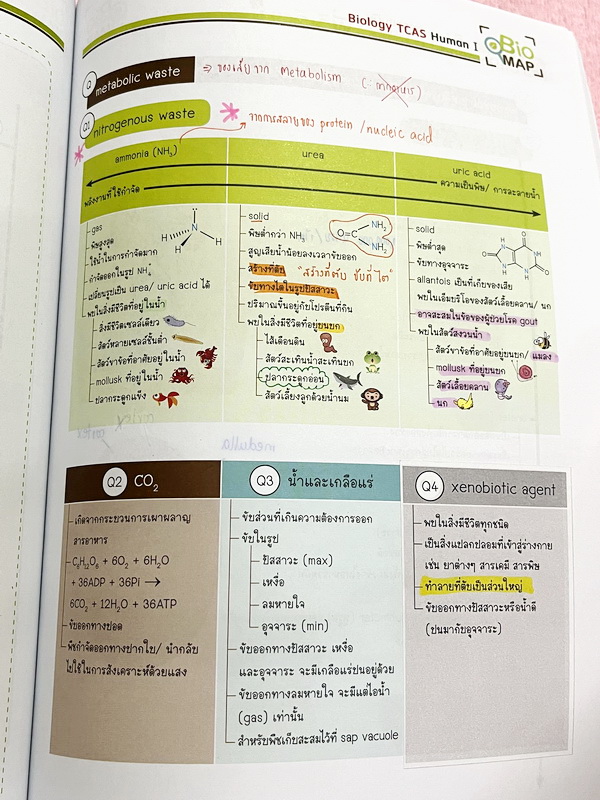 Biology TCAS Human I
Bio
MAP
Q metabolic waste ⇒ ของเสีย จาก Metabolism
Q1 nitrogenous waste จากการสลายของ protein / nucleic acid
ammonia (NH3) urea uric acid
ความเป็นพิษ/ การละลายน้ำ
พลังงานที่ใช้กำจัด
gas
พิษสูงสุด
ใช้น้ำในการกำจัดมาก
กำจัดออกในรูป NH4+
เปลี่ยนรูปเป็น urea/ uric acid ได้
พบในสิ่งมีชีวิตที่อยู่ในน้ำ
สิ่งมีชีวิตเซลล์เดียว
สัตว์หลายเซลล์ชั้นต่ำ
สัตว์ขาข้อที่อาศัยอยู่ในน้ำ
mollusk ที่อยู่ในน้ำ
ปลากระดูกแข็ง
N
H H H
solid
พิษต่ำกว่า NH3
สูญเสียน้ำน้อยลงเวลาขับออก
สร้างที่ตับ "สร้างที่ตับ ขับที่ไต"
ขับทางไตในรูปปัสสาวะ
ปริมาณขึ้นอยู่กับโปรตีนที่กิน
พบในสิ่งมีชีวิตที่อยู่บนบก
ไส้เดือนดิน
สัตว์สะเทินน้ำสะเทินบก
ปลากระดูกอ่อน
สัตว์เลี้ยงลูกด้วยน้ำนม
NH2
O=C
NH2
solid
พิษต่ำสุด
ขับทางอุจจาระ
allantois เป็นที่เก็บของเสีย
พบในเอ็มบริโอของสัตว์เลื้อยคลาน/ นก
อาจสะสมในข้อของผู้ป่วยโรค gout
พบในสัตว์สงวนน้ำ
สัตว์ขาข้อที่อาศัยอยู่บนบก/ แมลง
mollusk ที่อยู่บนบก
สัตว์เลื้อยคลาน
นก
Q2 CO2
เกิดจากกระบวนการเผาผลาญ
สารอาหาร
C6H12O6 + 6O2 + 6H2O
+ 36ADP + 36Pi →
6CO2 + 12H2O + 36ATP
ขับออกทางปอด
พืชกำจัดออกทางปากใบ/ นำกลับ
ไปใช้ในการสังเคราะห์ด้วยแสง
Q3 น้ำและเกลือแร่
ขับส่วนที่เกินความต้องการออก
ขับในรูป
ปัสสาวะ (max)
เหงื่อ
ลมหายใจ
อุจจาระ (min)
ขับออกทางปัสสาวะ เหงื่อ
และอุจจาระ จะมีเกลือแร่ปนอยู่ด้วย
ขับออกทางลมหายใจ จะมีแต่ไอน้ำ
(gas) เท่านั้น
สำหรับพืชเก็บสะสมไว้ที่ sap vacuole
Q4 xenobiotic agent
พบในสิ่งมีชีวิตทุกชนิด
เป็นสิ่งแปลกปลอมที่เข้าสู่ร่างกาย
เช่น ยาต่างๆ สารเคมี สารพิษ
ทำลายที่ตับเป็นส่วนใหญ่
ขับออกทางปัสสาวะหรือน้ำดี
(ปนมากับอุจจาระ)